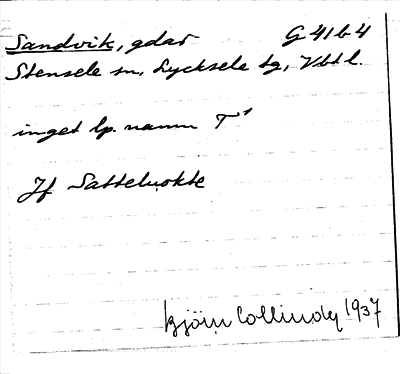 Sandvik, gdar G 41 b 4
Stensele sn, Lycksele tg, Vbtl.
inget lp. namn T¹
Jf Satteluokte
Björn Collinder 1937